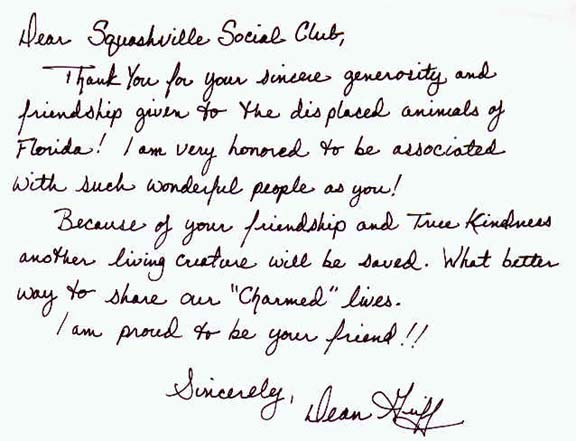 Dear Squashville Social Club,
Thank You for your sincere generosity and
friendship given to the displaced animals of
Florida! I am very honored to be associated
with such wonderful people as you!
Because of your friendship and True Kindness
another living creature will be saved. What better
way to share our "Charmed" lives.
I am proud to be your friend!!
Sincerely,
Dean Griff